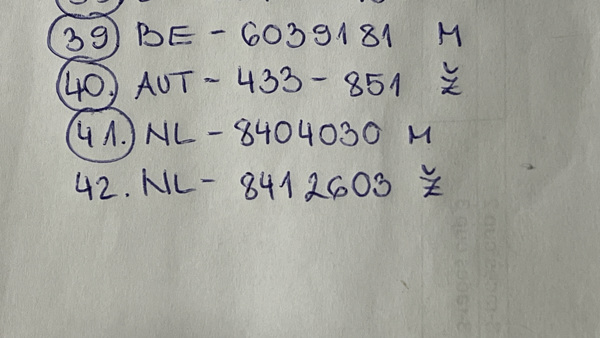 39 BE - 6039181 M
40. AUT - 433 - 851 Ž
41. NL - 8404030 M
42. NL - 8412603 Ž